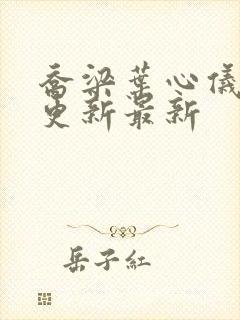 乔梁葉心儀
更新最新
岳子紅